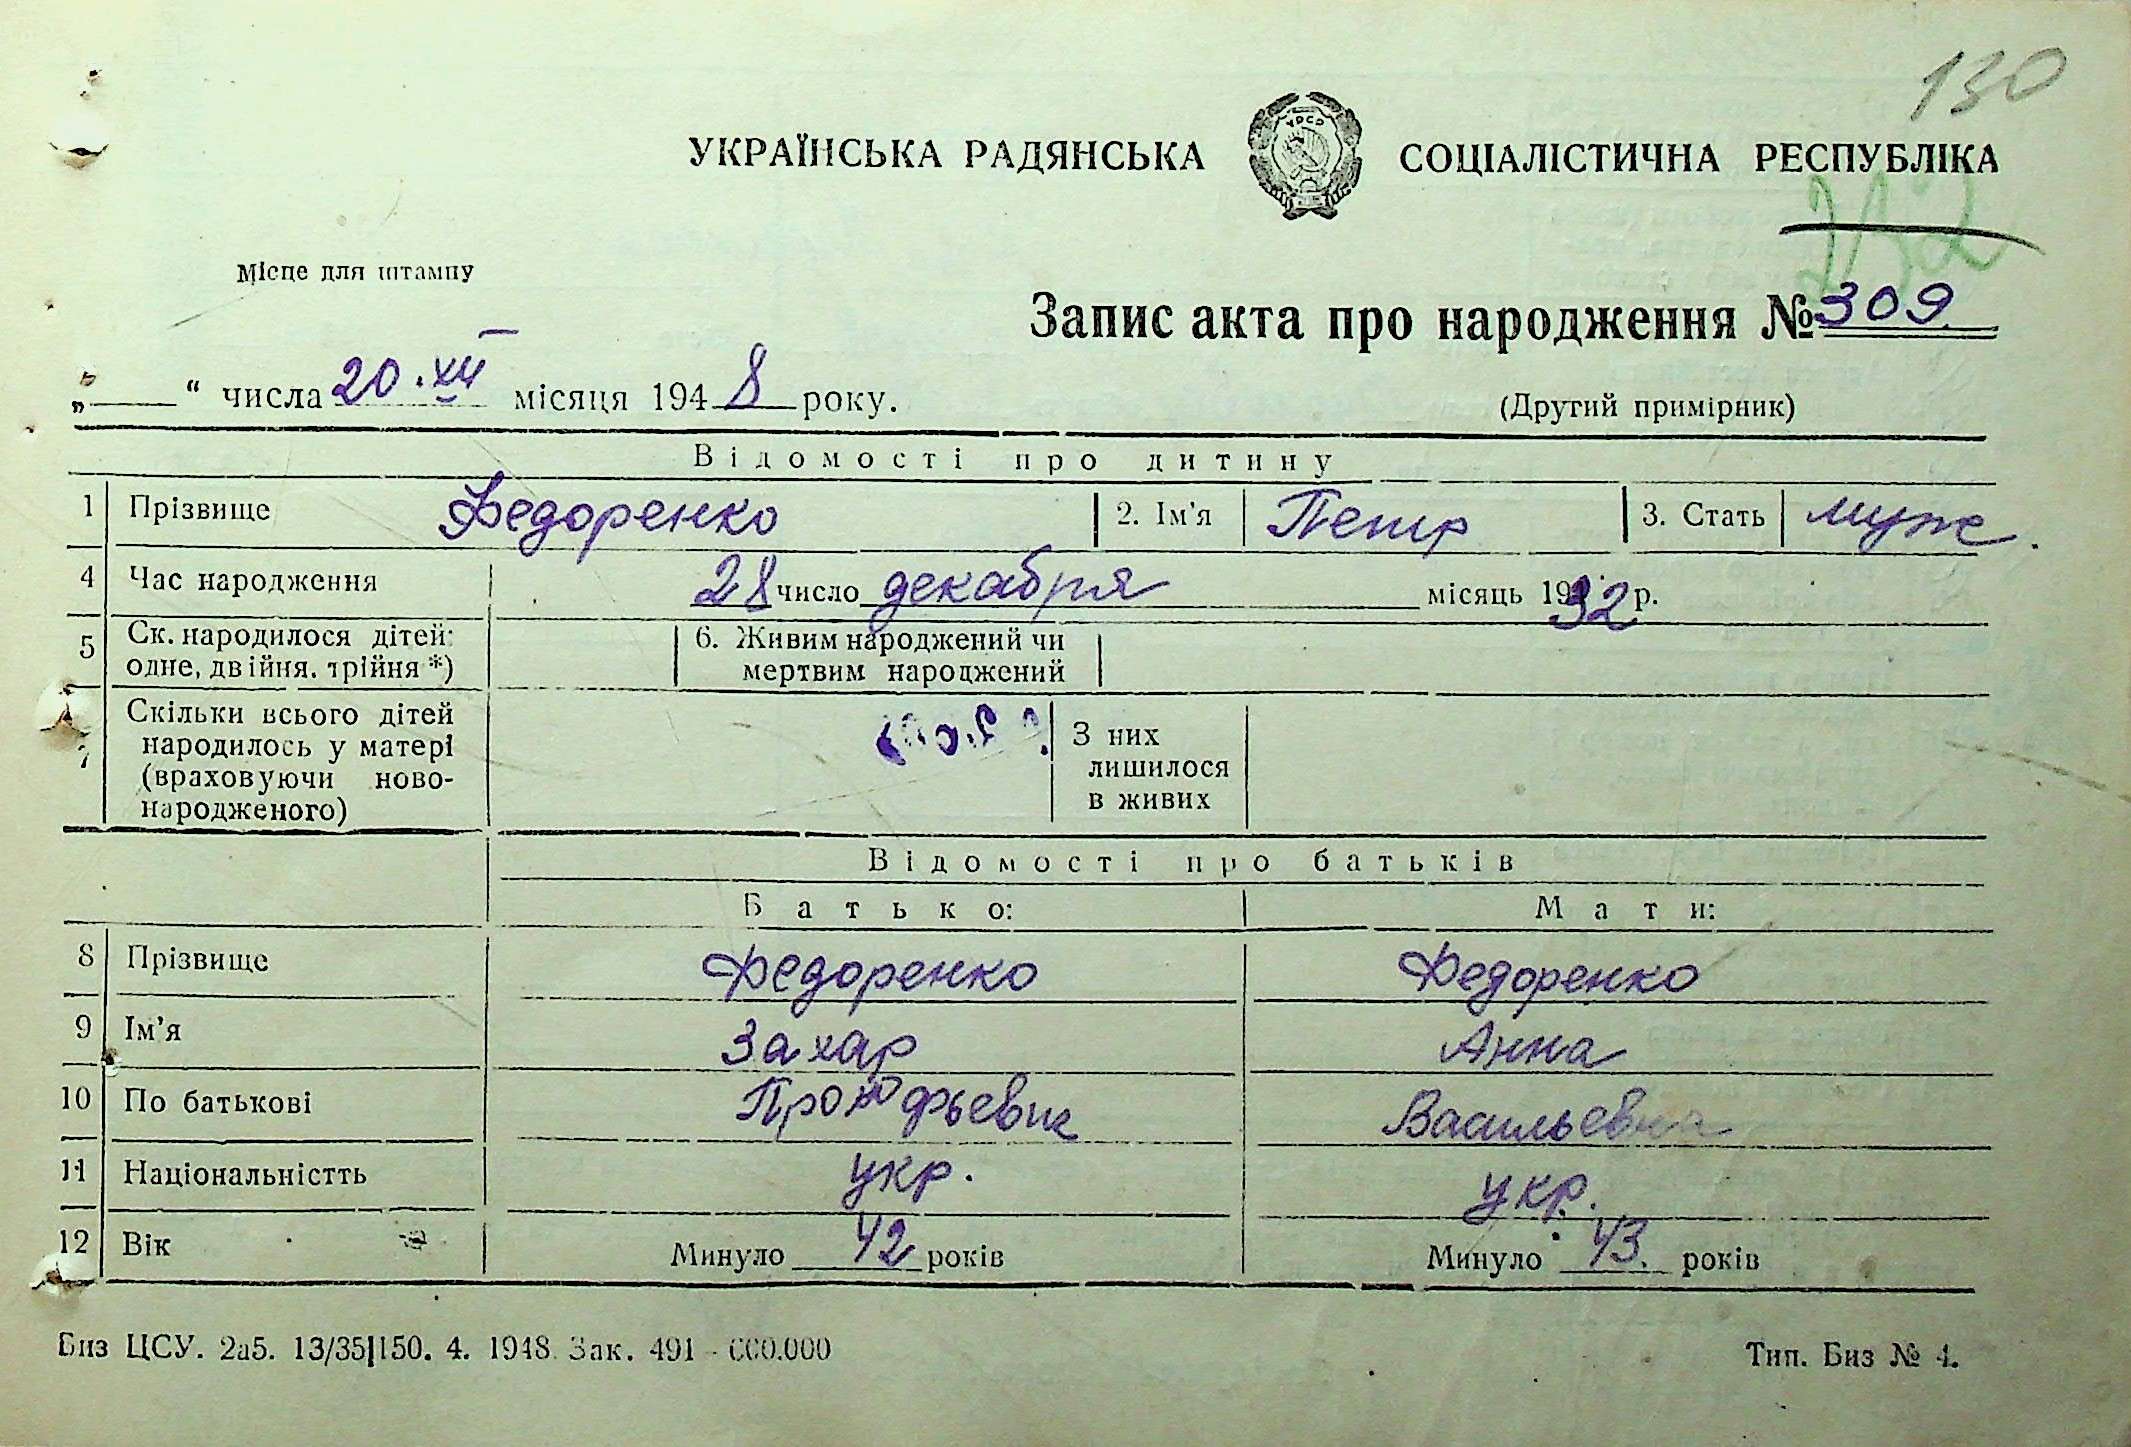 130
УКРАЇНСЬКА РАДЯНСЬКА СОЦІАЛІСТИЧНА РЕСПУБЛІКА
УРСР
Місце для штампу
Запис акта про народження № 309
„ “ числа 20. XII місяця 1948 року.
(Другий примірник)
Відомості про дитину
1 Прізвище Федоренко 2. Ім'я Петр 3. Стать муж.
4 Час народження 28 число декабря місяць 1932 р.
5 Ск. народилося дітей: одне, двійня. трійня *) 6. Живим народжений чи мертвим народжений
7 Скільки всього дітей народилось у матері (враховуючи ново-народженого) З них лишилося в живих
Відомості про батьків
Батько: Мати:
8 Прізвище Федоренко Федоренко
9 Ім'я Захар Анна
10 По батькові Прокофьевич Васильевна
11 Національністть укр. укр.
12 Вік Минуло 42 років Минуло 43. років
Биз ЦСУ. 2а5. 13/35|150. 4. 1948. Зак. 491 - 600.000 Тип. Биз № 4.